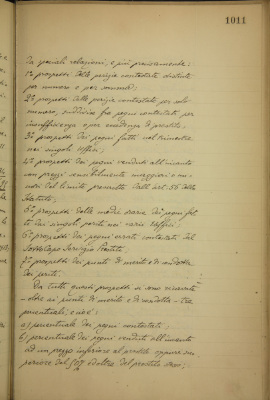 1011
da speciali relazioni, e più precisamente:
1° prospetti delle perizie contestate distinte
per numero e per somma;
2° prospetti delle perizie contestate per solo
numero, suddivise fra pegni contestati per
insufficienza e per eccedenza di prestito;
3° prospetti dei pegni fatti nel trimestre
nei singoli Uffici;
4° prospetti dei pegni venduti all'incanto
con prezzi sensibilmente maggiori o mi-
nori del limite permesso dall'art. 56 dello
Statuto;
5° prospetti delle medie varie dei pegni fat-
ti dai singoli periti nei varii Uffici;
6° prospetti dei pegni errati contestati dal
Sottocapo Servizio Prestiti;
7° prospetti dei punti di merito e di condotta
dei periti.
Da tutti questi prospetti si sono ricavate
- oltre ai punti di merito e di condotta - tre
percentuali, e cioè:
a) percentuale dei pegni contestati;
b) percentuale dei pegni venduti all'incanto
ad un prezzo inferiore al prestito oppure su-
periore del 50% od oltre del prestito stesso;